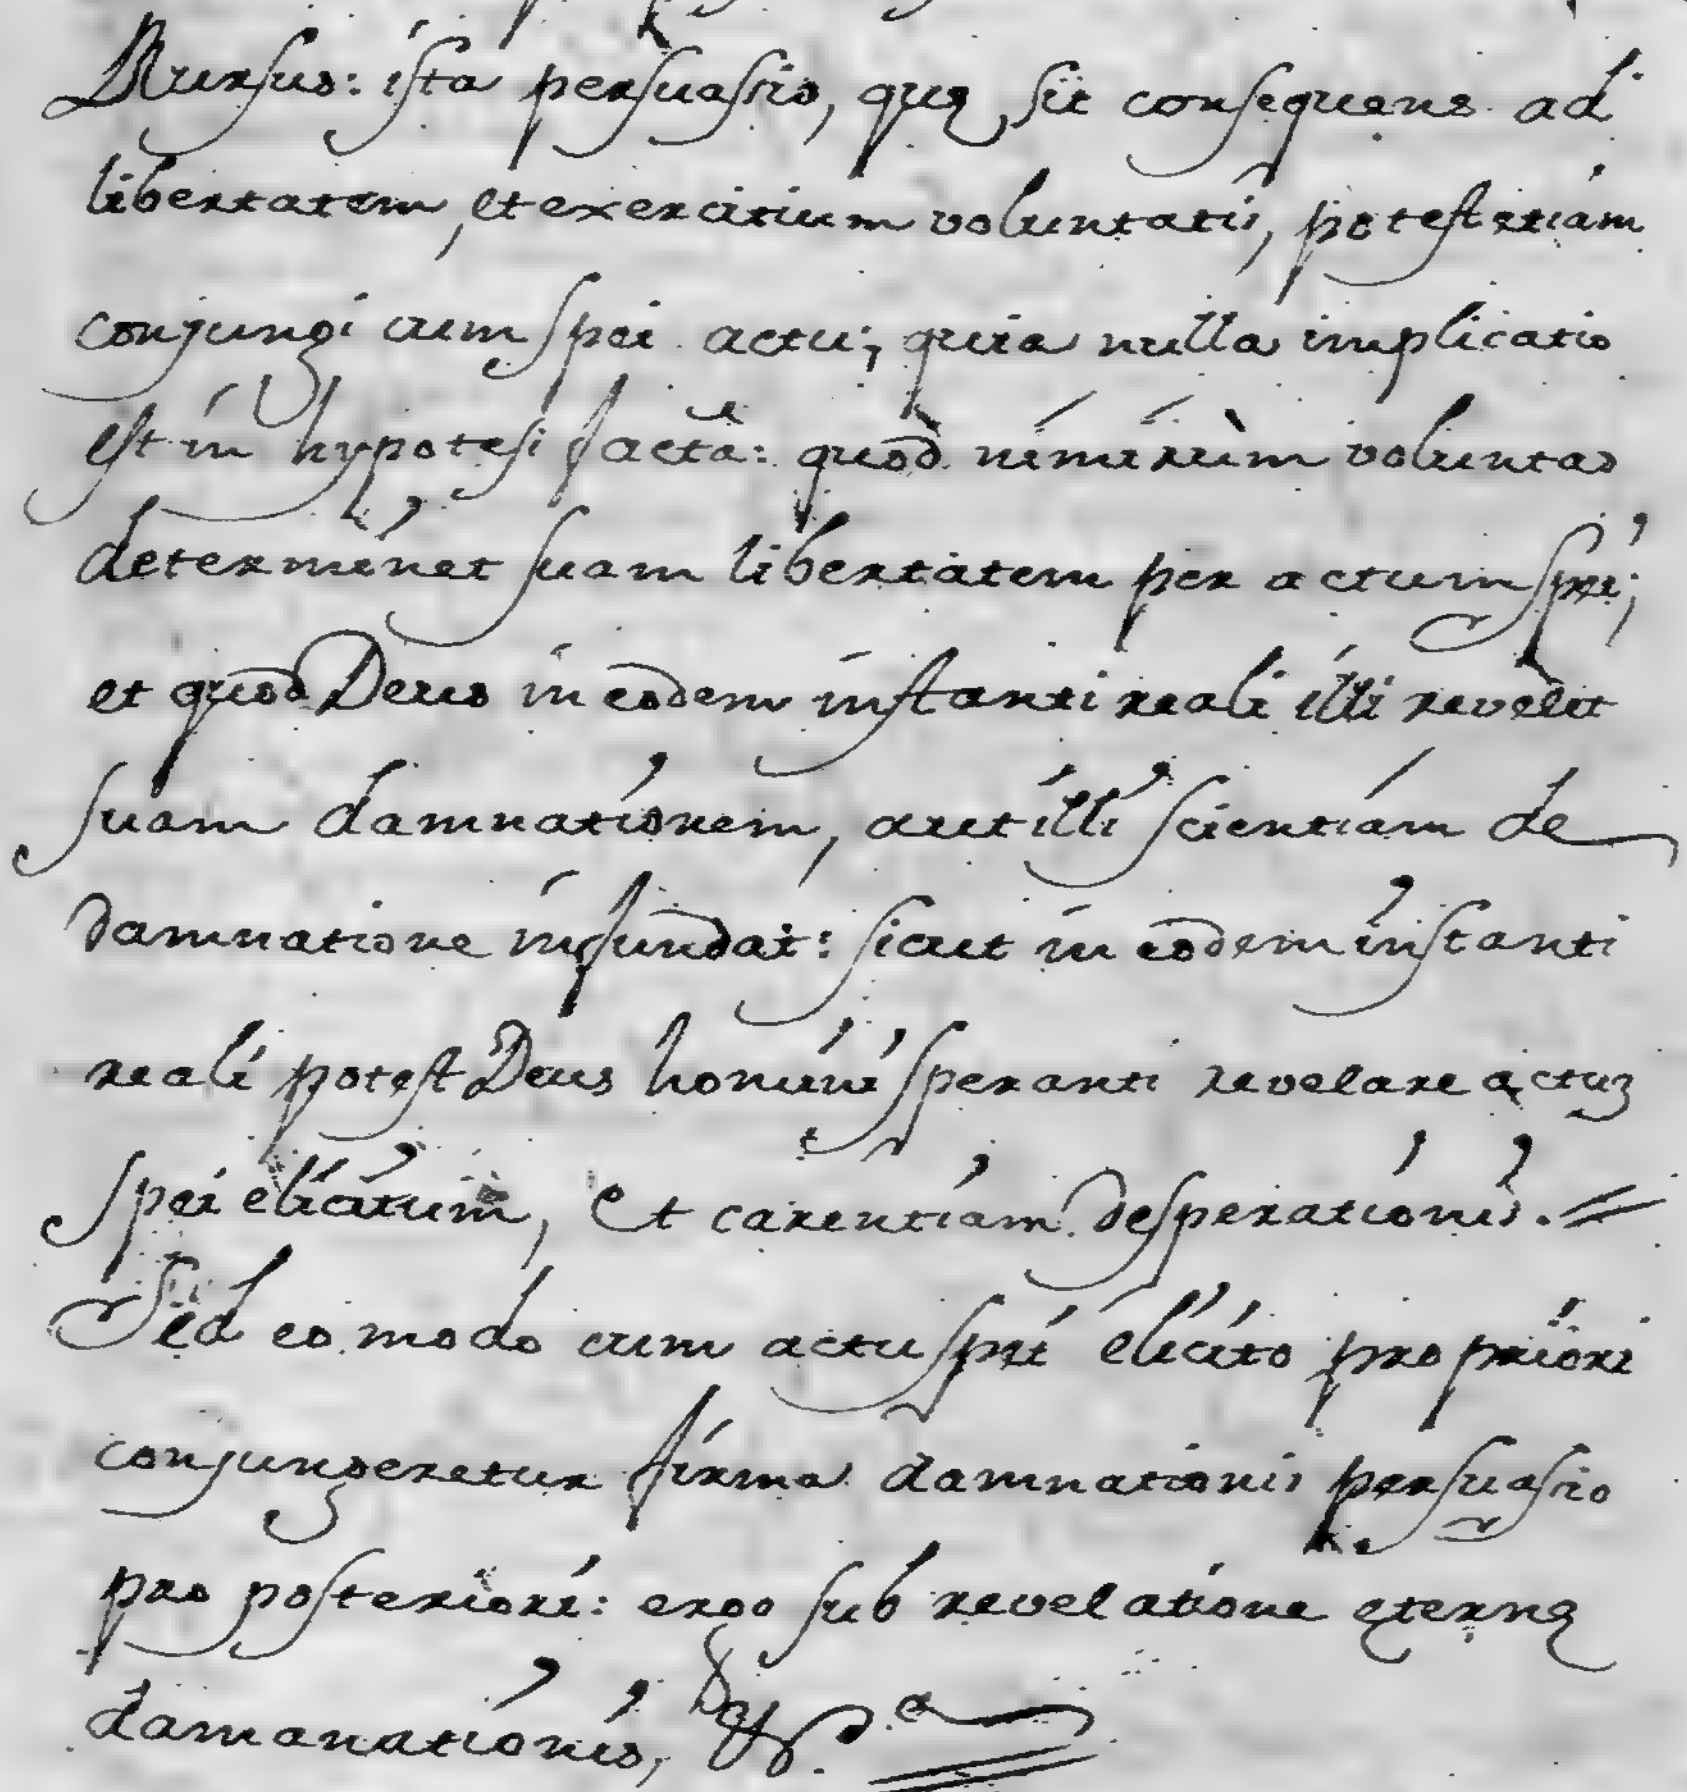 Rursus: ista persuasio, quę sit consequens ad
libertatem, et exercitium voluntatis, potest etiam
conjungi cum spei actu; quia nulla implicatio
est in hypotesi facta: quod nimirùm voluntas
determinet suam libertatem per actum spei;
et quod Deus in eodem instanti reali illi revelet
suam damnationem, aut illi scientiam de
damnatione infundat: sicut in eodem instanti
reali potest Deus homini speranti revelare actuʒ
spei elicitum, et carentiam desperationis.
Sed eo modo cum actu spei elicito pro priori
conjungeretur firma damnationis persuasio
pro posteriori: ergo sub revelatione ęternę
damanationis, &.ª